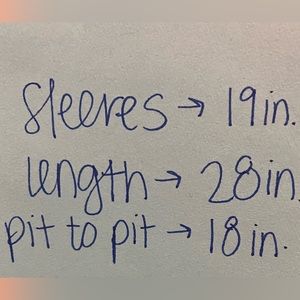 sleeves → 19in.
length → 28in.
pit to pit → 18in.